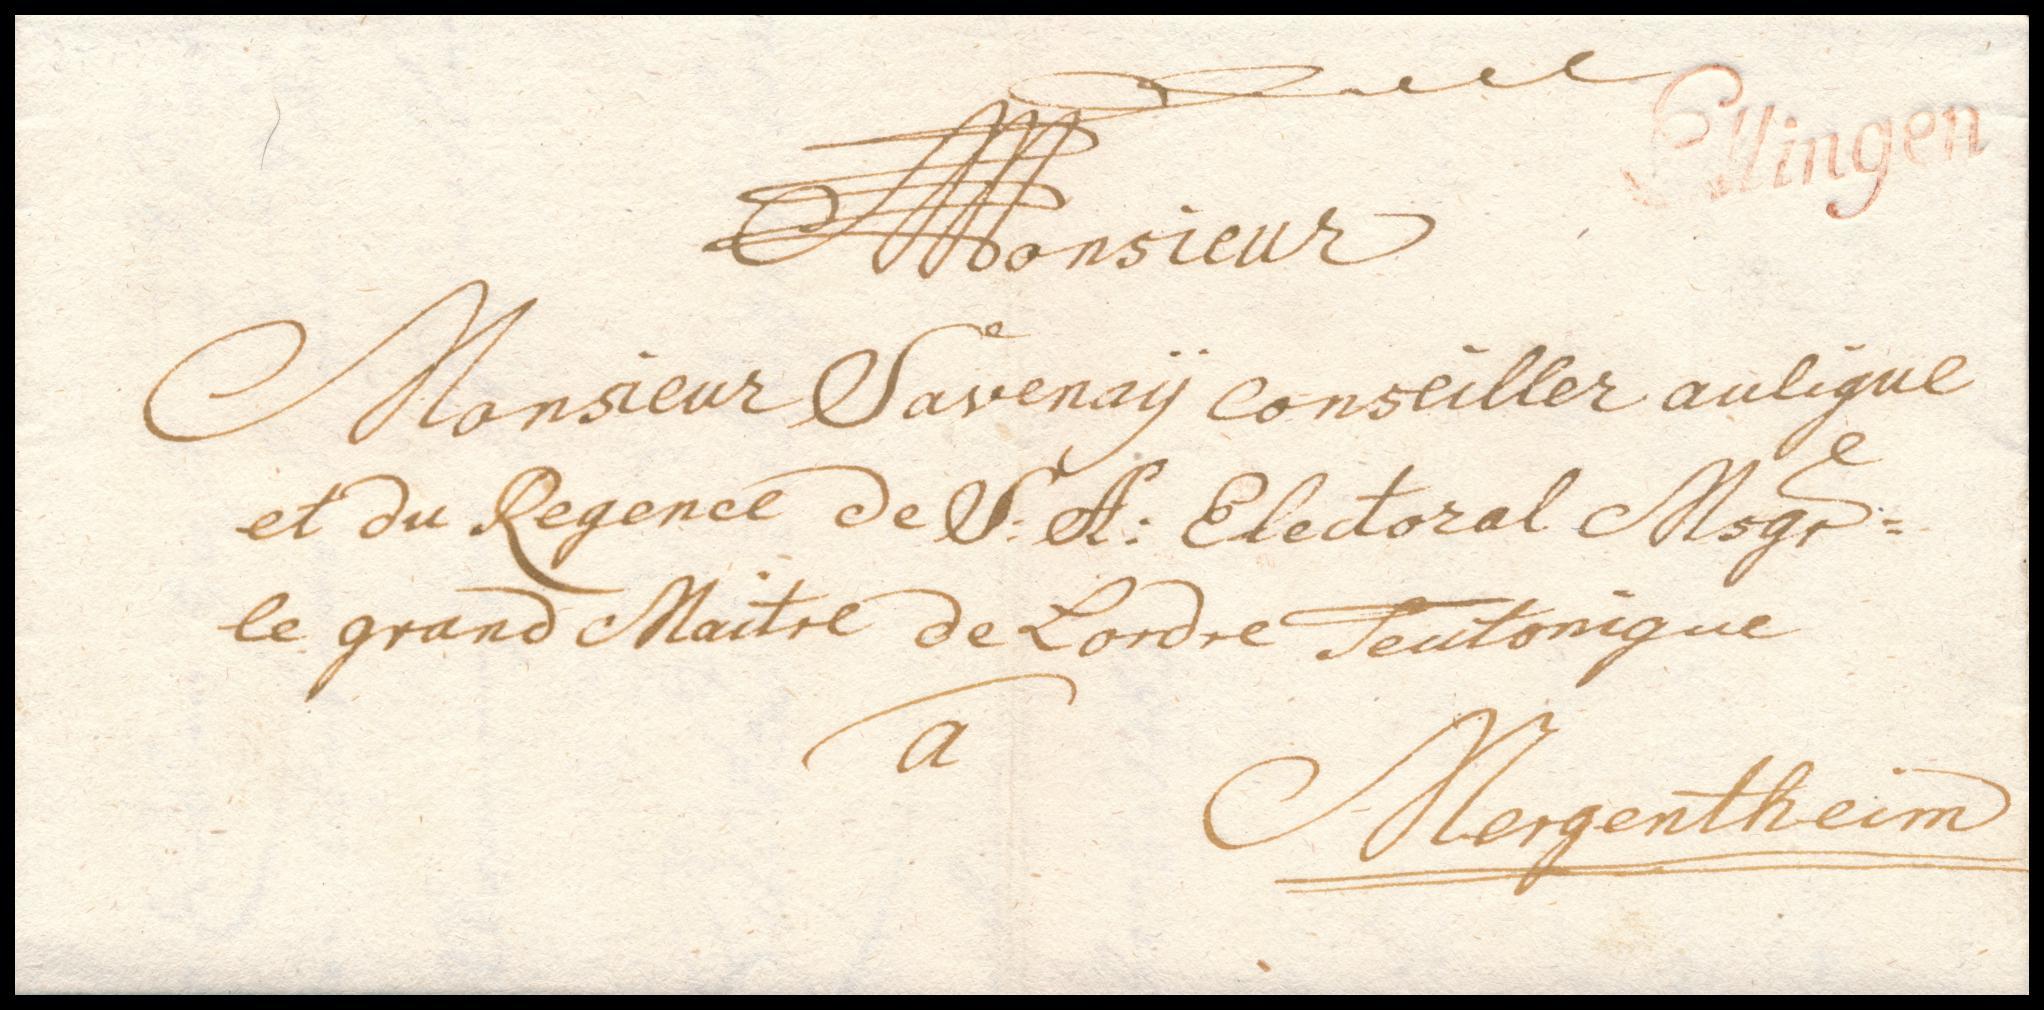 Ellingen
Monsieur
Monsieur Savenaÿ conseiller aulique
et du Regence de S: A: Electoral Msgr^e=
le grand Maitre de Lordre Teutonique
a
Mergentheim